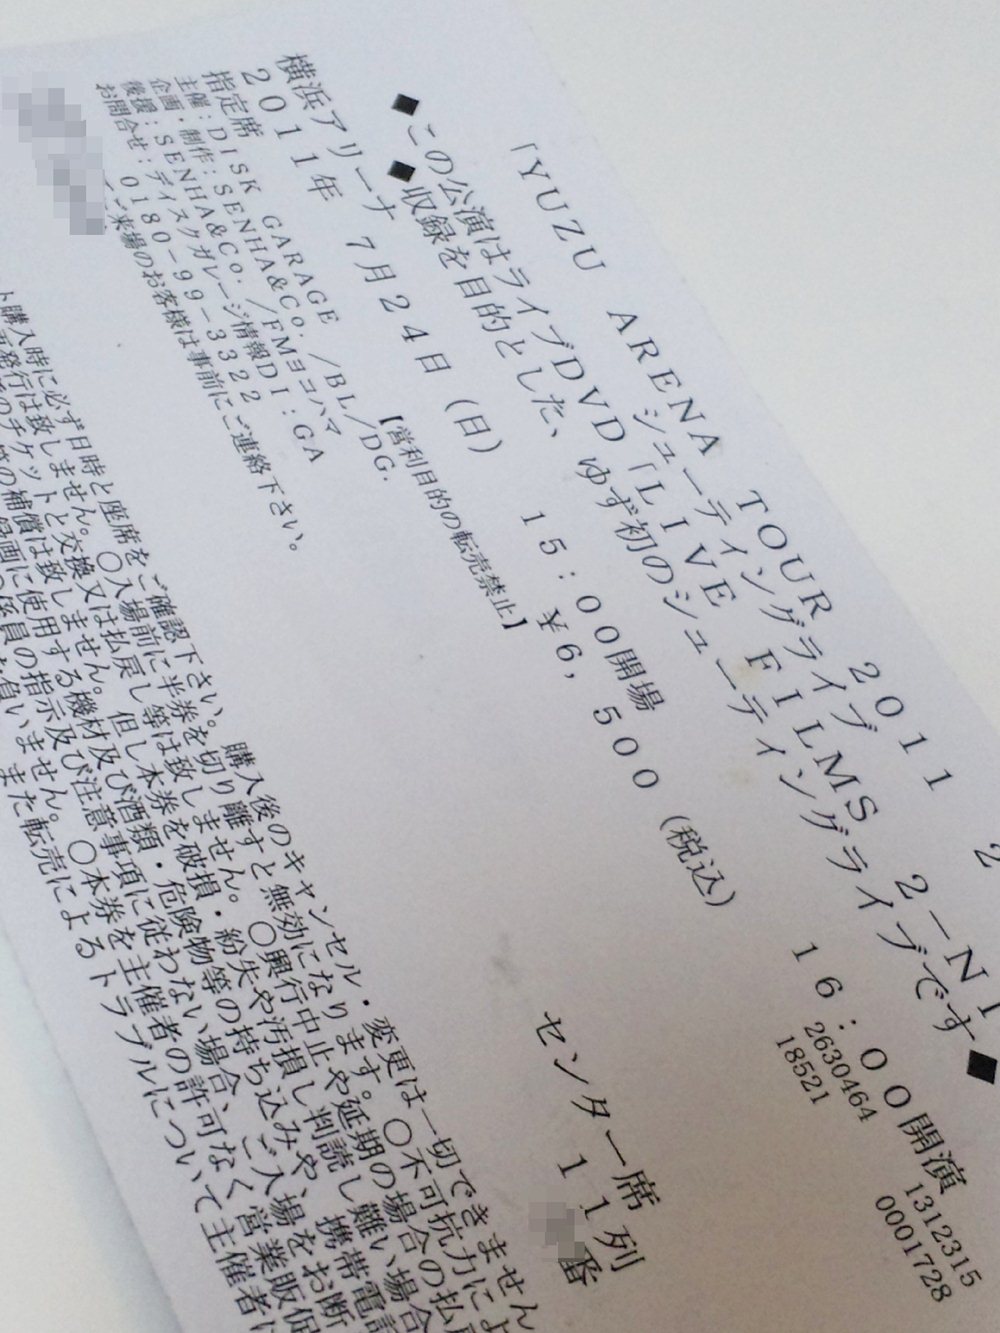 「YUZU ARENA TOUR 2011 2
シューティングライブ
◆この公演はライブDVD「LIVE FILMS 2-NI
◆収録を目的とした、ゆず初のシューティングライブです◆
横浜アリーナ
2011年 7月24日 (日) 15:00開場 16:00開演
指定席 ¥6,500 (税込)
主催:DISK GARAGE /BL/DG.
企画・制作:SENHA&Co.
後援:SENHA&Co./FMヨコハマ
お問合せ:ディスクガレージ情報DI:GA
0180-99-3322
【営利目的の転売禁止】
ご来場のお客様は事前にご連絡下さい。
センター席 11列
番
2630464 1312315
18521 0001728
ト購入時に必ず日時と座席をご確認下さい。 購入後のキャンセル・変更は一切できません
再発行は致しません。〇入場前に半券を切り離すと無効になります。〇不可抗力によ
のチケットと交換又は払戻し等は致しません。〇興行中止や延期の場合の払
の補償は致しません。但し本券を破損・紛失や汚損し判読し難い場合
録画に使用する機材及び酒類・危険物等の持ち込みや、携帯電話
係員の指示及び注意事項に従わない場合、ご入場をお断
負いません。〇本券を主催者の許可なく営業販促
また転売によるトラブルについて主催者に